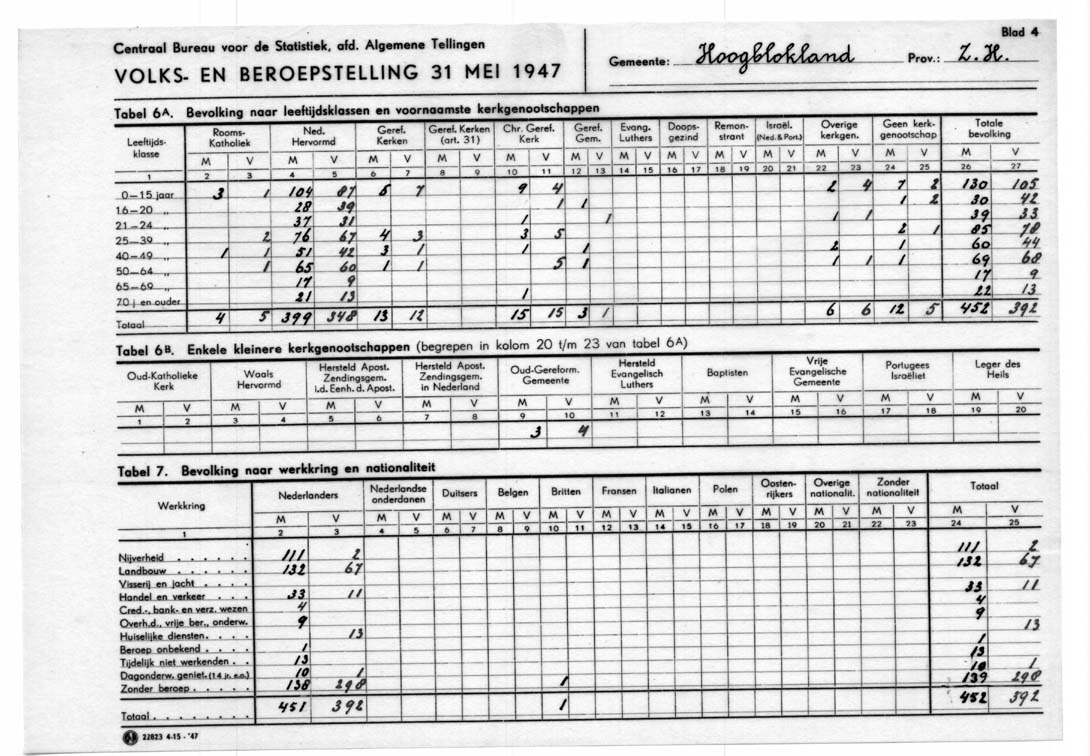 Blad 4
Centraal Bureau voor de Statistiek, afd. Algemene Tellingen
VOLKS- EN BEROEPSTELLING 31 MEI 1947
Gemeente: Hoogblokland Prov.: Z.H.
Tabel 6A. Bevolking naar leeftijdsklassen en voornaamste kerkgenootschappen
Leeftijds-klasse | Rooms-Katholiek | Ned. Hervormd | Geref. Kerken | Geref. Kerken (art. 31) | Chr. Geref. Kerk | Geref. Gem. | Evang. Luthers | Doops-gezind | Remon-strant | Israël. (Ned. & Port.) | Overige kerkgen. | Geen kerk-genootschap | Totale bevolking
M V M V M V M V M V M V M V M V M V M V M V M V M V
1 2 3 4 5 6 7 8 9 10 11 12 13 14 15 16 17 18 19 20 21 22 23 24 25 26 27
0—15 jaar 3 1 104 87 5 7 9 4 2 4 7 2 130 105
16—20 „ 28 39 1 1 1 2 30 42
21—24 „ 37 31 1 1 1 1 39 33
25—39 „ 2 76 67 4 3 3 5 2 1 85 78
40—49 „ 1 1 51 42 3 1 1 1 2 1 60 44
50—64 „ 1 65 60 1 1 5 1 1 1 1 69 68
65—69 „ 17 9 17 9
70 j en ouder 21 13 1 22 13
Totaal 4 5 399 348 13 12 15 15 3 1 6 6 12 5 452 392
Tabel 6B. Enkele kleinere kerkgenootschappen (begrepen in kolom 20 t/m 23 van tabel 6A)
Oud-Katholieke Kerk | Waals Hervormd | Hersteld Apost. Zendingsgem. i.d. Eenh. d. Apost. | Hersteld Apost. Zendingsgem. in Nederland | Oud-Gereform. Gemeente | Hersteld Evangelisch Luthers | Baptisten | Vrije Evangelische Gemeente | Portugees Israëliet | Leger des Heils
M V M V M V M V M V M V M V M V M V M V
1 2 3 4 5 6 7 8 9 10 11 12 13 14 15 16 17 18 19 20
3 4
Tabel 7. Bevolking naar werkkring en nationaliteit
Werkkring | Nederlanders | Nederlandse onderdanen | Duitsers | Belgen | Britten | Fransen | Italianen | Polen | Oosten-rijkers | Overige nationalit. | Zonder nationaliteit | Totaal
M V M V M V M V M V M V M V M V M V M V M V M V
1 2 3 4 5 6 7 8 9 10 11 12 13 14 15 16 17 18 19 20 21 22 23 24 25
Nijverheid . . . . . . 111 2 111 2
Landbouw . . . . . . 132 67 132 67
Visserij en jacht . . . .
Handel en verkeer . . . 33 11 33 11
Cred.-, bank- en verz. wezen 4 4
Overh.d., vrije ber., onderw. 9 9
Huiselijke diensten. . . . 13 13
Beroep onbekend . . . . 1 1
Tijdelijk niet werkenden . . 13 13
Dagonderw. geniet. (14 jr. e.o.) 10 1 10 1
Zonder beroep. . . . . 138 298 1 139 298
Totaal. . . . . . . . 451 392 1 452 392
22823 4-15 - '47